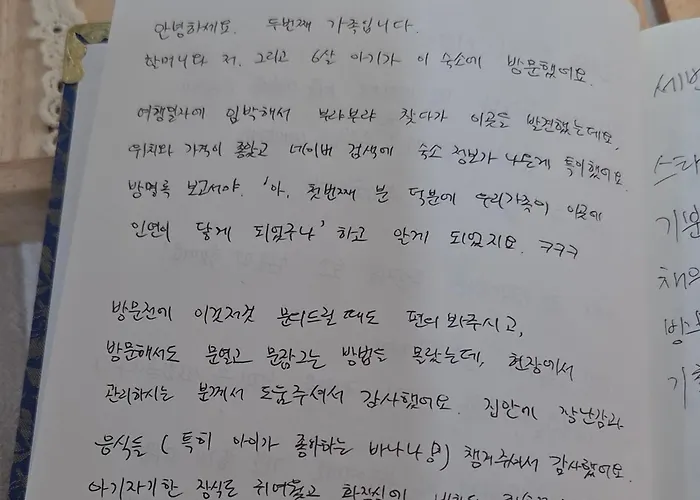 안녕하세요. 두번째 가족입니다.
할머니와 저, 그리고 6살 아기가 이 숙소에 방문했어요.
여행날자에 임박해서 부랴부랴 찾다가 이곳을 발견했는데요,
위치와 가격이 좋았고 네이버 검색에 숙소 정보가 나온게 특이했어요.
방명록 보고서야. '아, 첫번째 분 덕분에 우리가족이 이곳에
인연이 닿게 되었구나' 하고 알게 되었지요. ㅋㅋㅋ
방문전에 이것저것 문의드릴 때도 편의 봐주시고,
방문해서도 문열고 문잠그는 방법을 몰랐는데, 현장에서
관리하시는 분께서 도움주셔서 감사했어요. 집안에 장난감과
음식들 (특히 아이가 좋아하는 바나나!) 챙겨주셔서 감사했어요.
아기자기한 장식도 귀여웠고
세번
기분
채
방